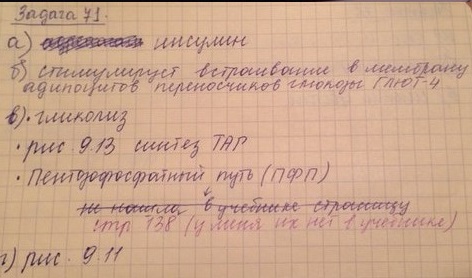 Задача 71.
а) инсулин
б) стимулирует встраивание в мембрану
адипоцитов переносчиков глюкозы ГЛЮТ-4
в)• гликолиз
• рис 9.13 синтез ТАГ
• Пентозофосфатный путь (ПФП)
не нашла в учебнике страницу
стр 138 (у меня их нет в учебнике)
г) рис. 9.11